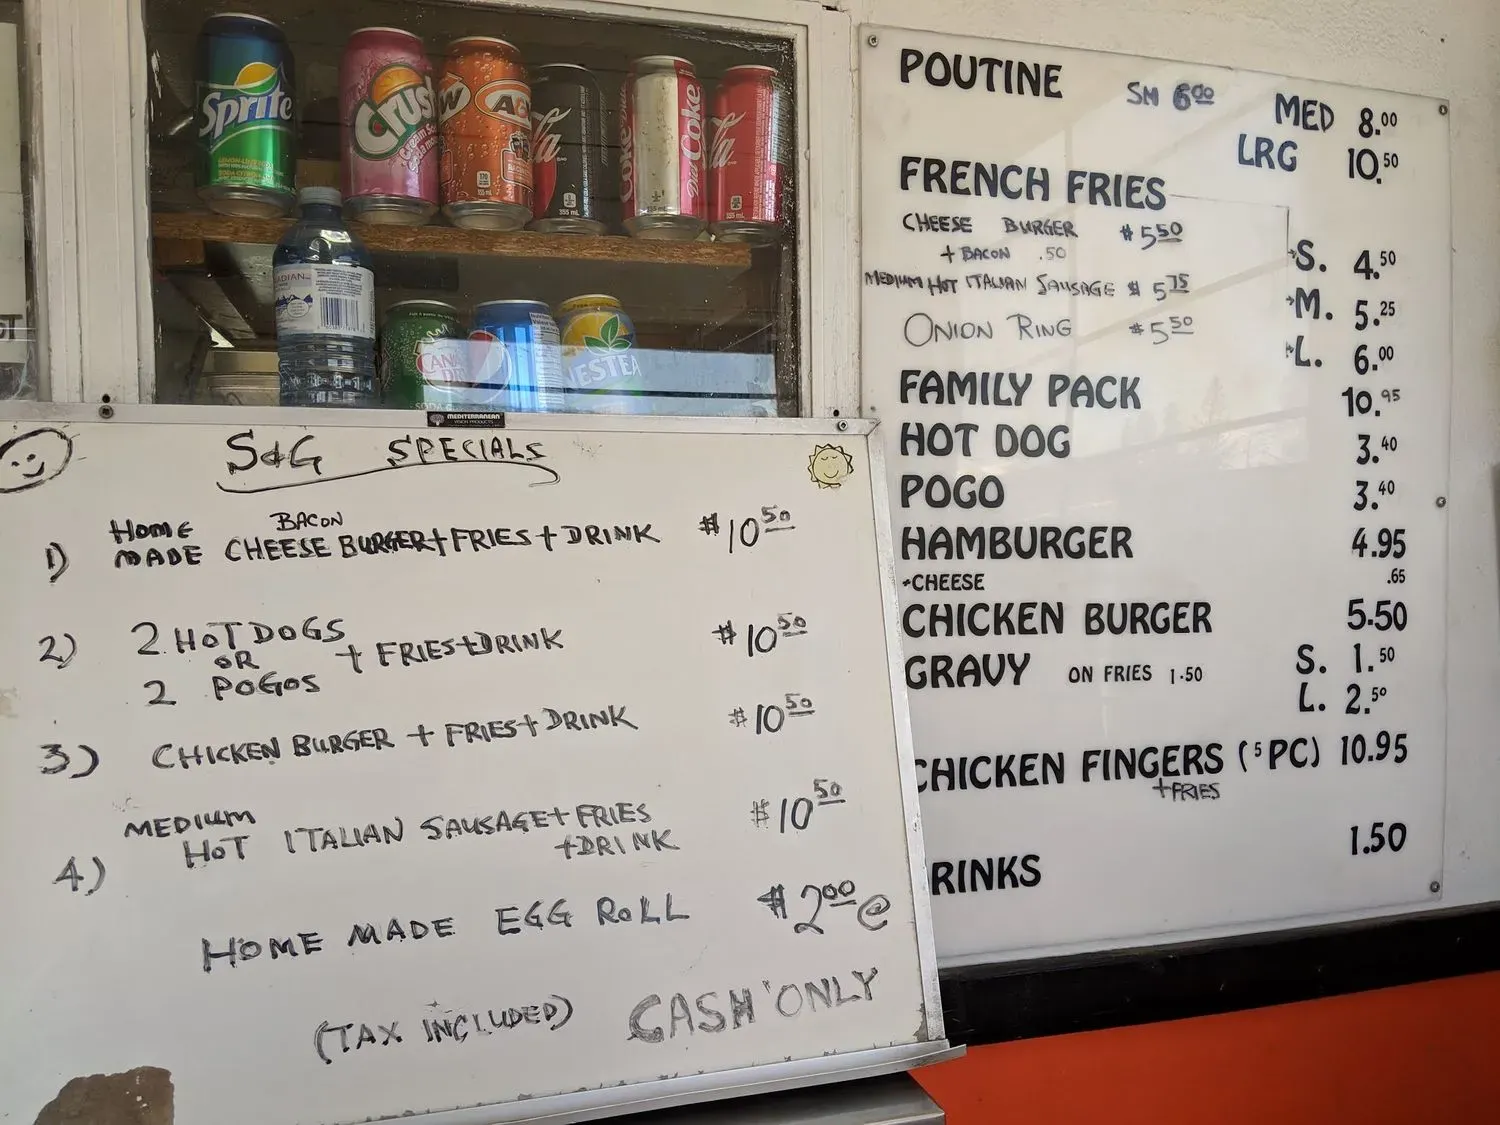 Sprite
Crush
Cream Soda
A&W
355 mL
Coke
Diet Coke
355 mL
355 mL
NESTEA
MEDITERRANEAN
S&G SPECIALS
1) HOME MADE BACON CHEESE BURGER + FRIES + DRINK $10.50
2) 2 HOT DOGS
OR + FRIES + DRINK $10.50
2 POGOS
3) CHICKEN BURGER + FRIES + DRINK $10.50
4) MEDIUM HOT ITALIAN SAUSAGE + FRIES $10.50
+ DRINK
HOME MADE EGG ROLL $2.00 @
(TAX INCLUDED) CASH ONLY
POUTINE SM 6.00 MED 8.00
LRG 10.50
FRENCH FRIES
CHEESE BURGER $5.50
+ BACON .50
S. 4.50
MEDIUM HOT ITALIAN SAUSAGE $5.75
M. 5.25
ONION RING $5.50
L. 6.00
FAMILY PACK 10.95
HOT DOG 3.40
POGO 3.40
HAMBURGER 4.95
+CHEESE .65
CHICKEN BURGER 5.50
GRAVY ON FRIES 1.50 S. 1.50
L. 2.50
CHICKEN FINGERS (5PC) 10.95
+FRIES
RINKS 1.50